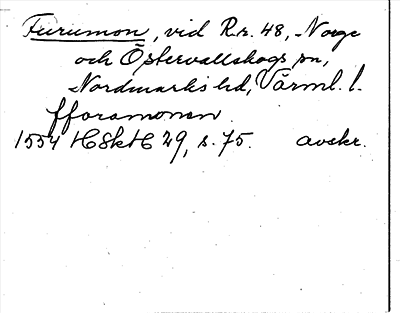 Furumon, vid R.r. 48, Norge
och Östervallskogs sn,
Nordmarks hd, Värml. l.
fforamonen
1554 HSkH 29, s. 75. avskr.